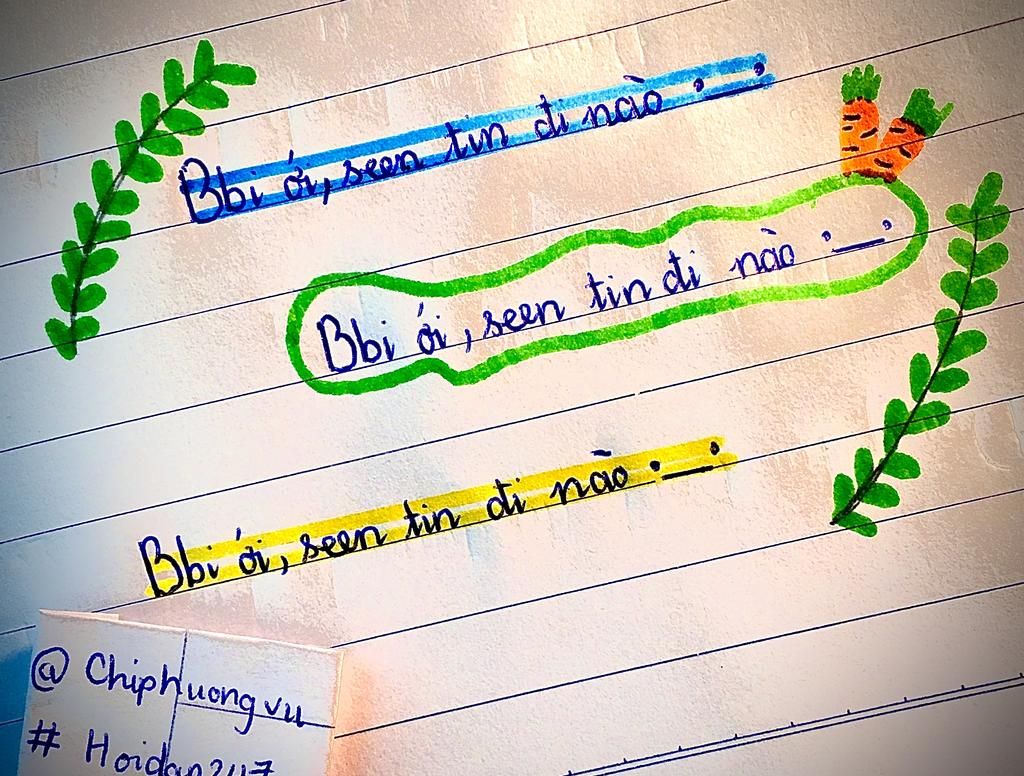 Bbi ới, seen tin đi nào ·__·
Bbi ới, seen tin đi nào ·__·
Bbi ới, seen tin đi nào ·__·
@ Chiphuongvu
# Hoidap247